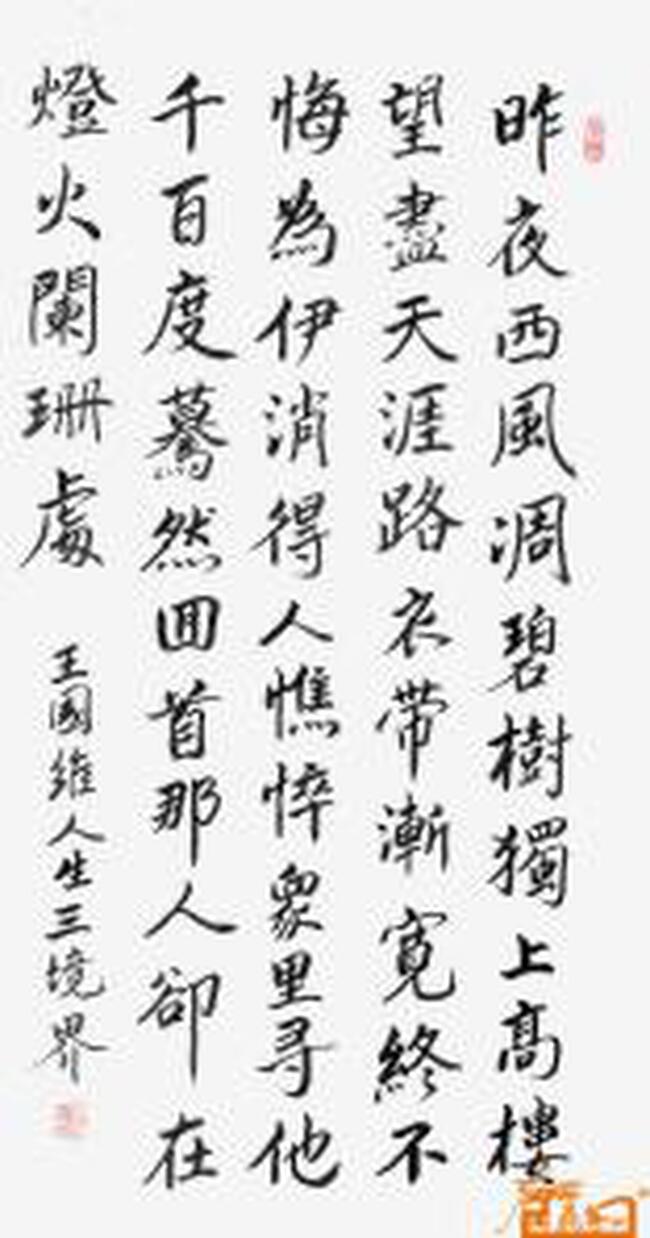 昨夜西風凋碧樹獨上高樓
望盡天涯路衣帶漸寬終不
悔為伊消得人憔悴眾里寻他
千百度驀然囬首那人卻在
燈火闌珊處
王國維人生三境界